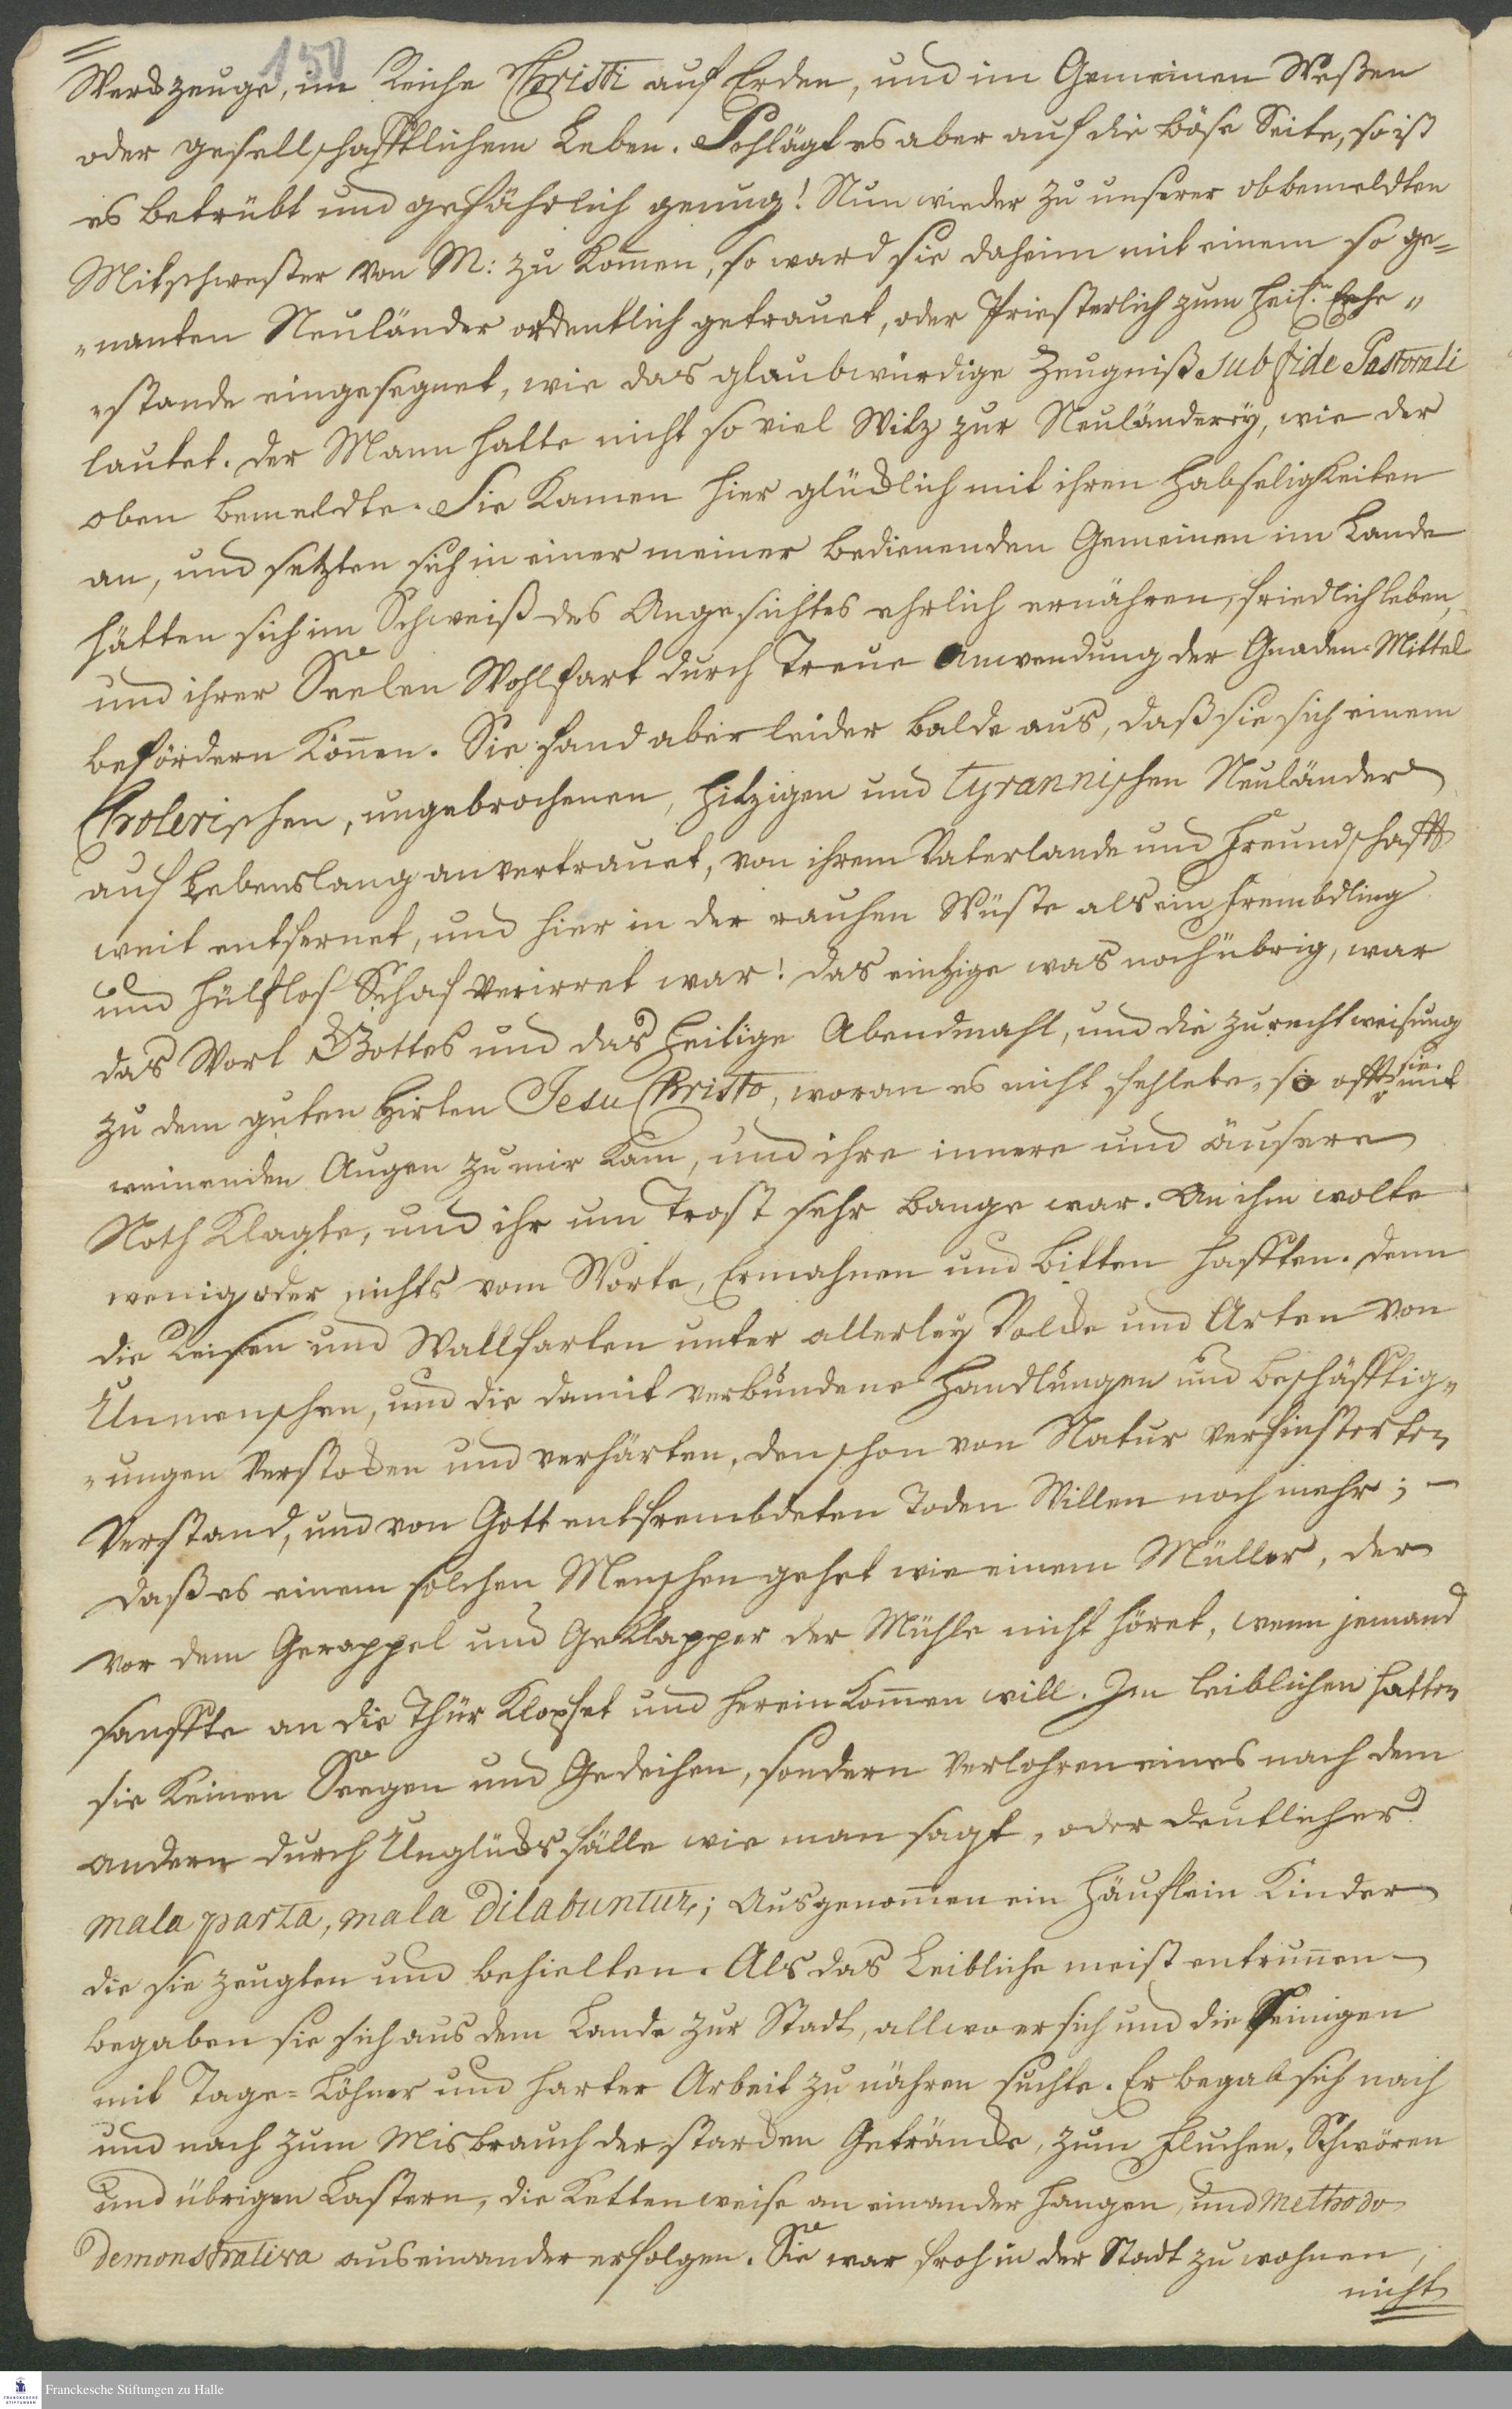 150
Werckzeuge, im Reiche Christi auf Erden, und im Gemeinen Weßen
oder gesellschafftlichem Leben. Schlägt es aber auf die böse Seite, so ist
es betrübt und gefährlich genug! Nun wieder zu unserer obbemeldten
Mitschwester von M: zu kom̄en, so ward sie daheim mit einem so ge=
"nanten Neuländer ordentlich getrauet, oder Priesterlich zum heil. Ehe"
"stande eingesegnet, wie das glaubwürdige Zeugniß sub fide Pastorali
lautet. Der Mann hatte nicht so viel Witz zur Neuländerey, wie der
oben bemeldte. Sie kamen hier glücklich mit ihren Habseligkeiten
an, und setzten sich in einer meiner bedienenden Gemeinen im Lande
hätten sich im Schweiß des Angesichtes ehrlich ernähren, friedlich leben,
und ihrer Seelen Wohlfart durch treue Anwendung der Gnaden-Mittel
befördern kön̄en. Sie fand aber leider balde aus, daß sie sich einem
Cholerischen, ungebrochenen, hitzigen und tyrannischen Neuländer
auf Lebenslang anvertrauet, von ihrem Vaterlande und Freundschafft
weit entfernet, und hier in der rauhen Wüste als ein Frembdling
und hülflos Schaf verirret war! das eintzige was noch übrig, war
das Wort Gottes und das heilige Abendmahl, und die zurechtweisung
zu dem guten Hirten Jesu Christo, woran es nicht fehlete, so offt sie mit
weinenden Augen zu mir kam, und ihre innere und äusere
Noth klagte, und ihr um Trost sehr bange war. An ihm wolte
wenig oder nichts vom Worte, Ermahnen und Bitten hafften. denn
die Reisen und Wallfarten unter allerley Volcke und Arten von
Unmenschen, und die damit verbundene Handlungen und Beschäfftig"
"ungen verstocken und verhärten, den schon von Natur verfinsterten
Verstand, und von Gott entfrembdeten Toden Willen noch mehr; –
daß es einem solchen Menschen gehet wie einem Müller, der
vor dem Gerappel und Geklapper der Mühle nicht höret, wenn jemand
sanffte an die Thür klopfet und herein kom̄en will. Im leiblichen hatten
sie keinen Seegen und Gedeihen, sondern verlohren eines nach dem
andern durch Unglücksfälle wie man sagt, oder deutlicher
mala parta, mala dilabuntur; Ausgenom̄en ein Häuflein Kinder
die sie zeugten und behielten. Als das Leibliche meist entrun̄en
begaben sie sich aus dem Lande zur Stadt, allwo er sich und die Seinigen
mit Tage=Löhner und harter Arbeit zu nähren suchte. Er begab sich nach
und nach zum Misbrauch der starcken Geträncke, zum Fluchen, Schwören
und übrigen Lastern, die Kettenweise an einander hangen, und Methodo
demonstrativa auseinander erfolgen. Sie war froh in der Stadt zu wohnen,
nicht
Franckesche Stiftungen zu Halle